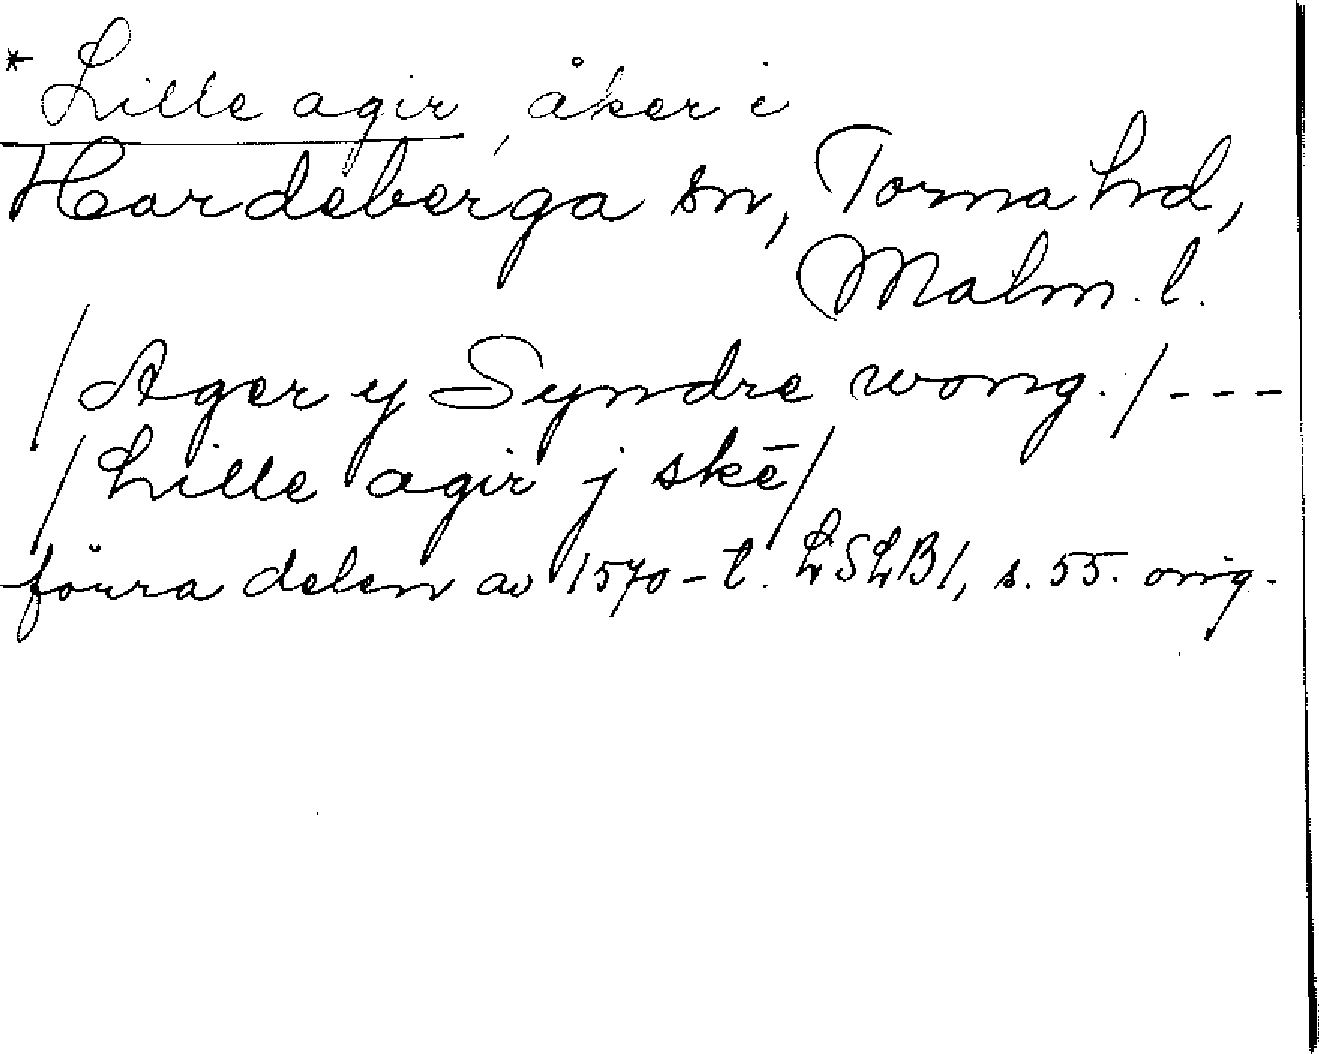 * Lille agir, åker i
Hardeberga sn, Torna hd,
Malm. l.
/Ager y Syndre wong./ ---
/Lille agir j skē/
förra delen av 1570-t. LSLB1, s. 55. orig.